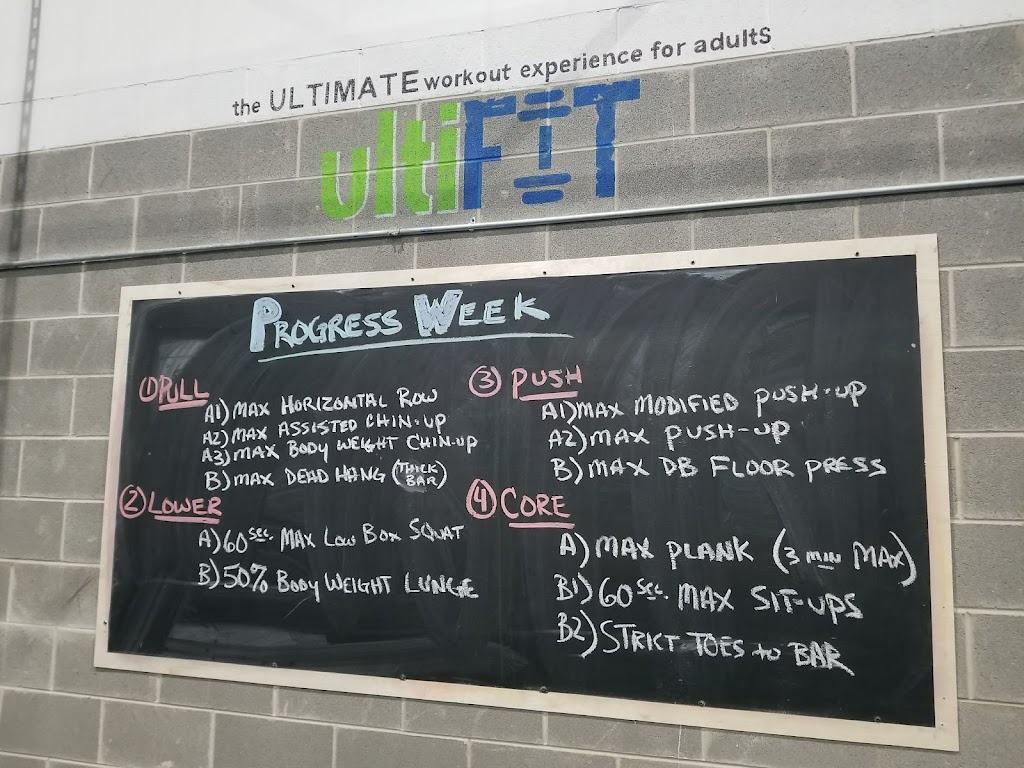 the ULTIMATE workout experience for adults
ultiFIT
PROGRESS WEEK
① PULL
A1) MAX HORIZONTAL ROW
A2) MAX ASSISTED CHIN-UP
A3) MAX BODY WEIGHT CHIN-UP
B) MAX DEAD HANG (THICK BAR)
② LOWER
A) 60 SEC. MAX LOW BOX SQUAT
B) 50% BODY WEIGHT LUNGE
③ PUSH
A1) MAX MODIFIED PUSH-UP
A2) MAX PUSH-UP
B) MAX DB FLOOR PRESS
④ CORE
A) MAX PLANK (3 MIN MAX)
B1) 60 SEC. MAX SIT-UPS
B2) STRICT TOES to BAR